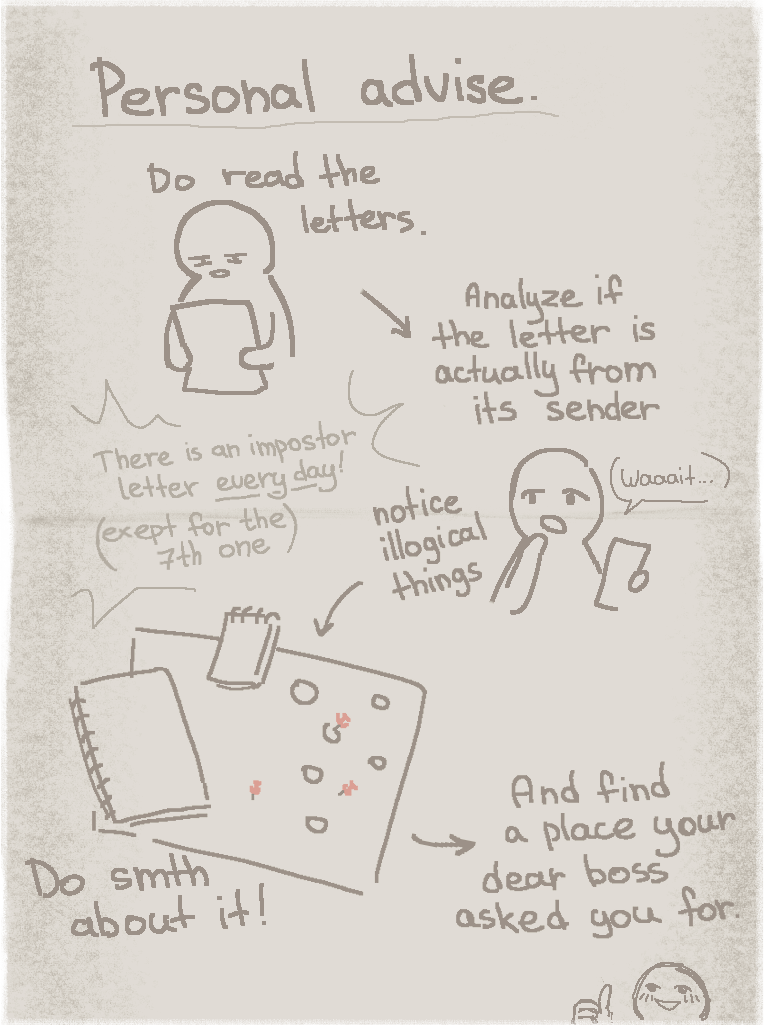 Personal advise.
Do read the
letters.
Analyze if
the letter is
actually from
its sender
There is an impostor
letter every day!
(exept for the
7th one)
(Waaait...)
notice
illogical
things
Do smth
about it!
And find
a place your
dear boss
asked you for.